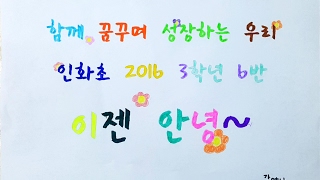 함께 꿈꾸며 성장하는 우리
인화초 2016 3학년 6반
이젠 안녕~